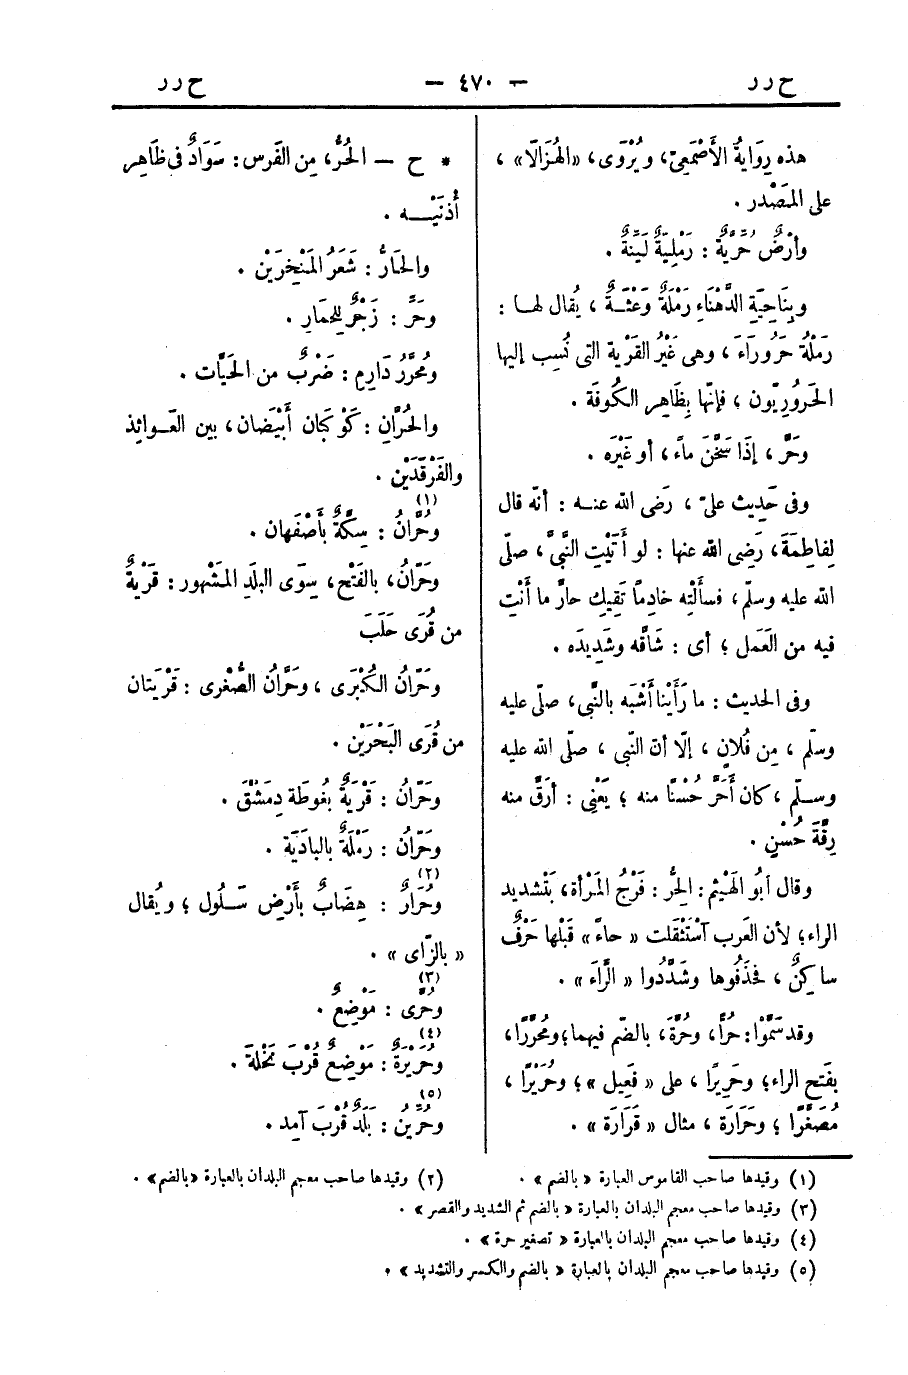 ح ر ر
— ٤٧٠ —
ح ر ر
هذه رِوَايةُ الأَصْمَعِىّ، ويُرْوَى، «الهُزَالَا» ،
على المَصْدر .
وأَرْضٌ حُرِّيَّةٌ : رَمْلِيَّةٌ لَيِّنَةٌ .
وبِنَاحِيَةِ الدَّهْنَاءِ رَمْلَةٌ وَعْثَـةٌ ، يُقال لهـا :
رَمْلةُ حَرُورَاءَ ، وهى غَيْرُ القَرْية التى نُسِب إليها
الحَرُورِيّون ، فإنّها بِظَاهِرِ الكُوفَة .
وحَرَّ ، إذَا سَخَّنَ ماءً ، أو غَيْرَه .
وفى حَدِيث علىّ ، رَضى الله عنـه : أنّه قال
لِفاطِمَةَ، رَضِى الله عنها : لو أَتَيْتِ النَّبِىَّ ، صلّى
الله عليه وسلّم ، فسأَلْتِه خادِماً تَقِيكِ حارَّ ما أَنْتِ
فيه من العَمَل ؛ أى : شَاقَّه وشَدِيدَه .
وفى الحديث : ما رَأَيْنا أَشْبَه بالنَّبِى، صلّى عليه
وسلّم ، مِن فُلانٍ ، إلّا أنّ النّبى ، صلّى الله عليه
وسـلّم ، كان أَحَرَّ حُسْنًا منه ؛ يَعْنِى : أرَقَّ منه
رِقَّةَ حُسْنٍ .
وقال أبُو الهَيْثم : الحِرُّ : فَرْجُ المَرْأة ، بَتْشديد
الراء؛ لأن العَرب آسْتَثْقَلت « حاءً » قَبْلها حَرْفٌ
ساكِنٌ ، فحَذَفُوها وشَدَّدُوا « الرَّاءَ » .
وقد سَمَّوْا : حُرًّا، وحُرَّةَ، بالضّم فيهما؛ومُحَرَّرًا،
بفَتح الراء؛ وحَرِيرًا ، على « فَعِيل » ؛ وحُرَيْرًا ،
مُصَغَّرًا ؛ وحَرَارَة ، مثال « قَرَارَة » .
* ح — الحُرُّ، مِن الفَرَس : سَوَادٌ فى ظَاهِر
أُذنَيْــه .
والحَارُّ : شَعَرُ المَنْخِرَيْن .
وحَرَّ : زَجْرٌ لِلحمَارِ .
ومُحَرَّرُ دَارِمٍ : ضَرْبٌ من الحَيَّات .
والحُرَّانِ : كَوْكَبان أَبْيَضان، بين العَـوائِذ
والفَرْقَدَيْن .
وحُرَّانُ (١) : سِكَّةٌ بأَصْفَهان .
وحَرّانُ، بالفَتْح، سِوَى البلَدِ المَشْهور : قَرْيةٌ
من قُرَى حَلَبَ
وحَرّانُ الكُبْرَى ، وحَرَّانُ الصُّغْرى : قَرْيَتان
من قُرَى البَحْرَيْن .
وحَرّانُ : قَرْيَةٌ بغُوطَة دِمَشْقَ .
وحَرّانُ : رَمْلَةٌ بالبادِيَة .
وحُرَارٌ (٢) : هِضَابٌ بأَرْضِ سَـلُول ؛ ويُقال
« بالزّاى » .
وحُرَّى (٣) : مَوْضِعٌ .
وحُرَيْرَةُ (٤) : مَوْضِعٌ قُرْبَ نَخْلَةَ .
وحُرِّينُ (٥) : بَلَدٌ قُرْبَ آمِد .
(١) وقيدها صاحب القاموس العبارة « بالضم » .
(٢) وقيدها صاحب معجم البلدان بالعبارة «بالضم» .
(٣) وقيدها صاحب معجم البلدان بالعبارة « بالضم ثم الشديد والقصر » .
(٤) وقيدها صاحب معجم البلدان بالعبارة « تصغير حرة » .
(٥) وقيدها صاحب معجم البلدان بالعبارة « بالضم والكسر والتشديد » .